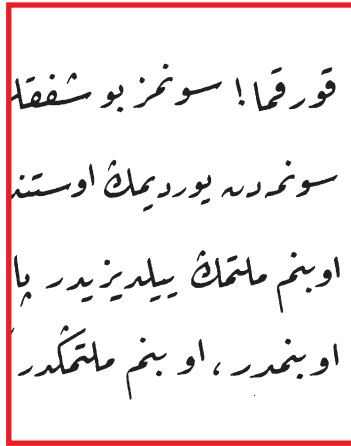 قورقما! سونمز بو شفقلـ
سونمه‌دن یوردیمڭ اوستند
او بنم ملتمڭ ییلدیزیدر پا
او بنمدر، او بنم ملتمڭدر